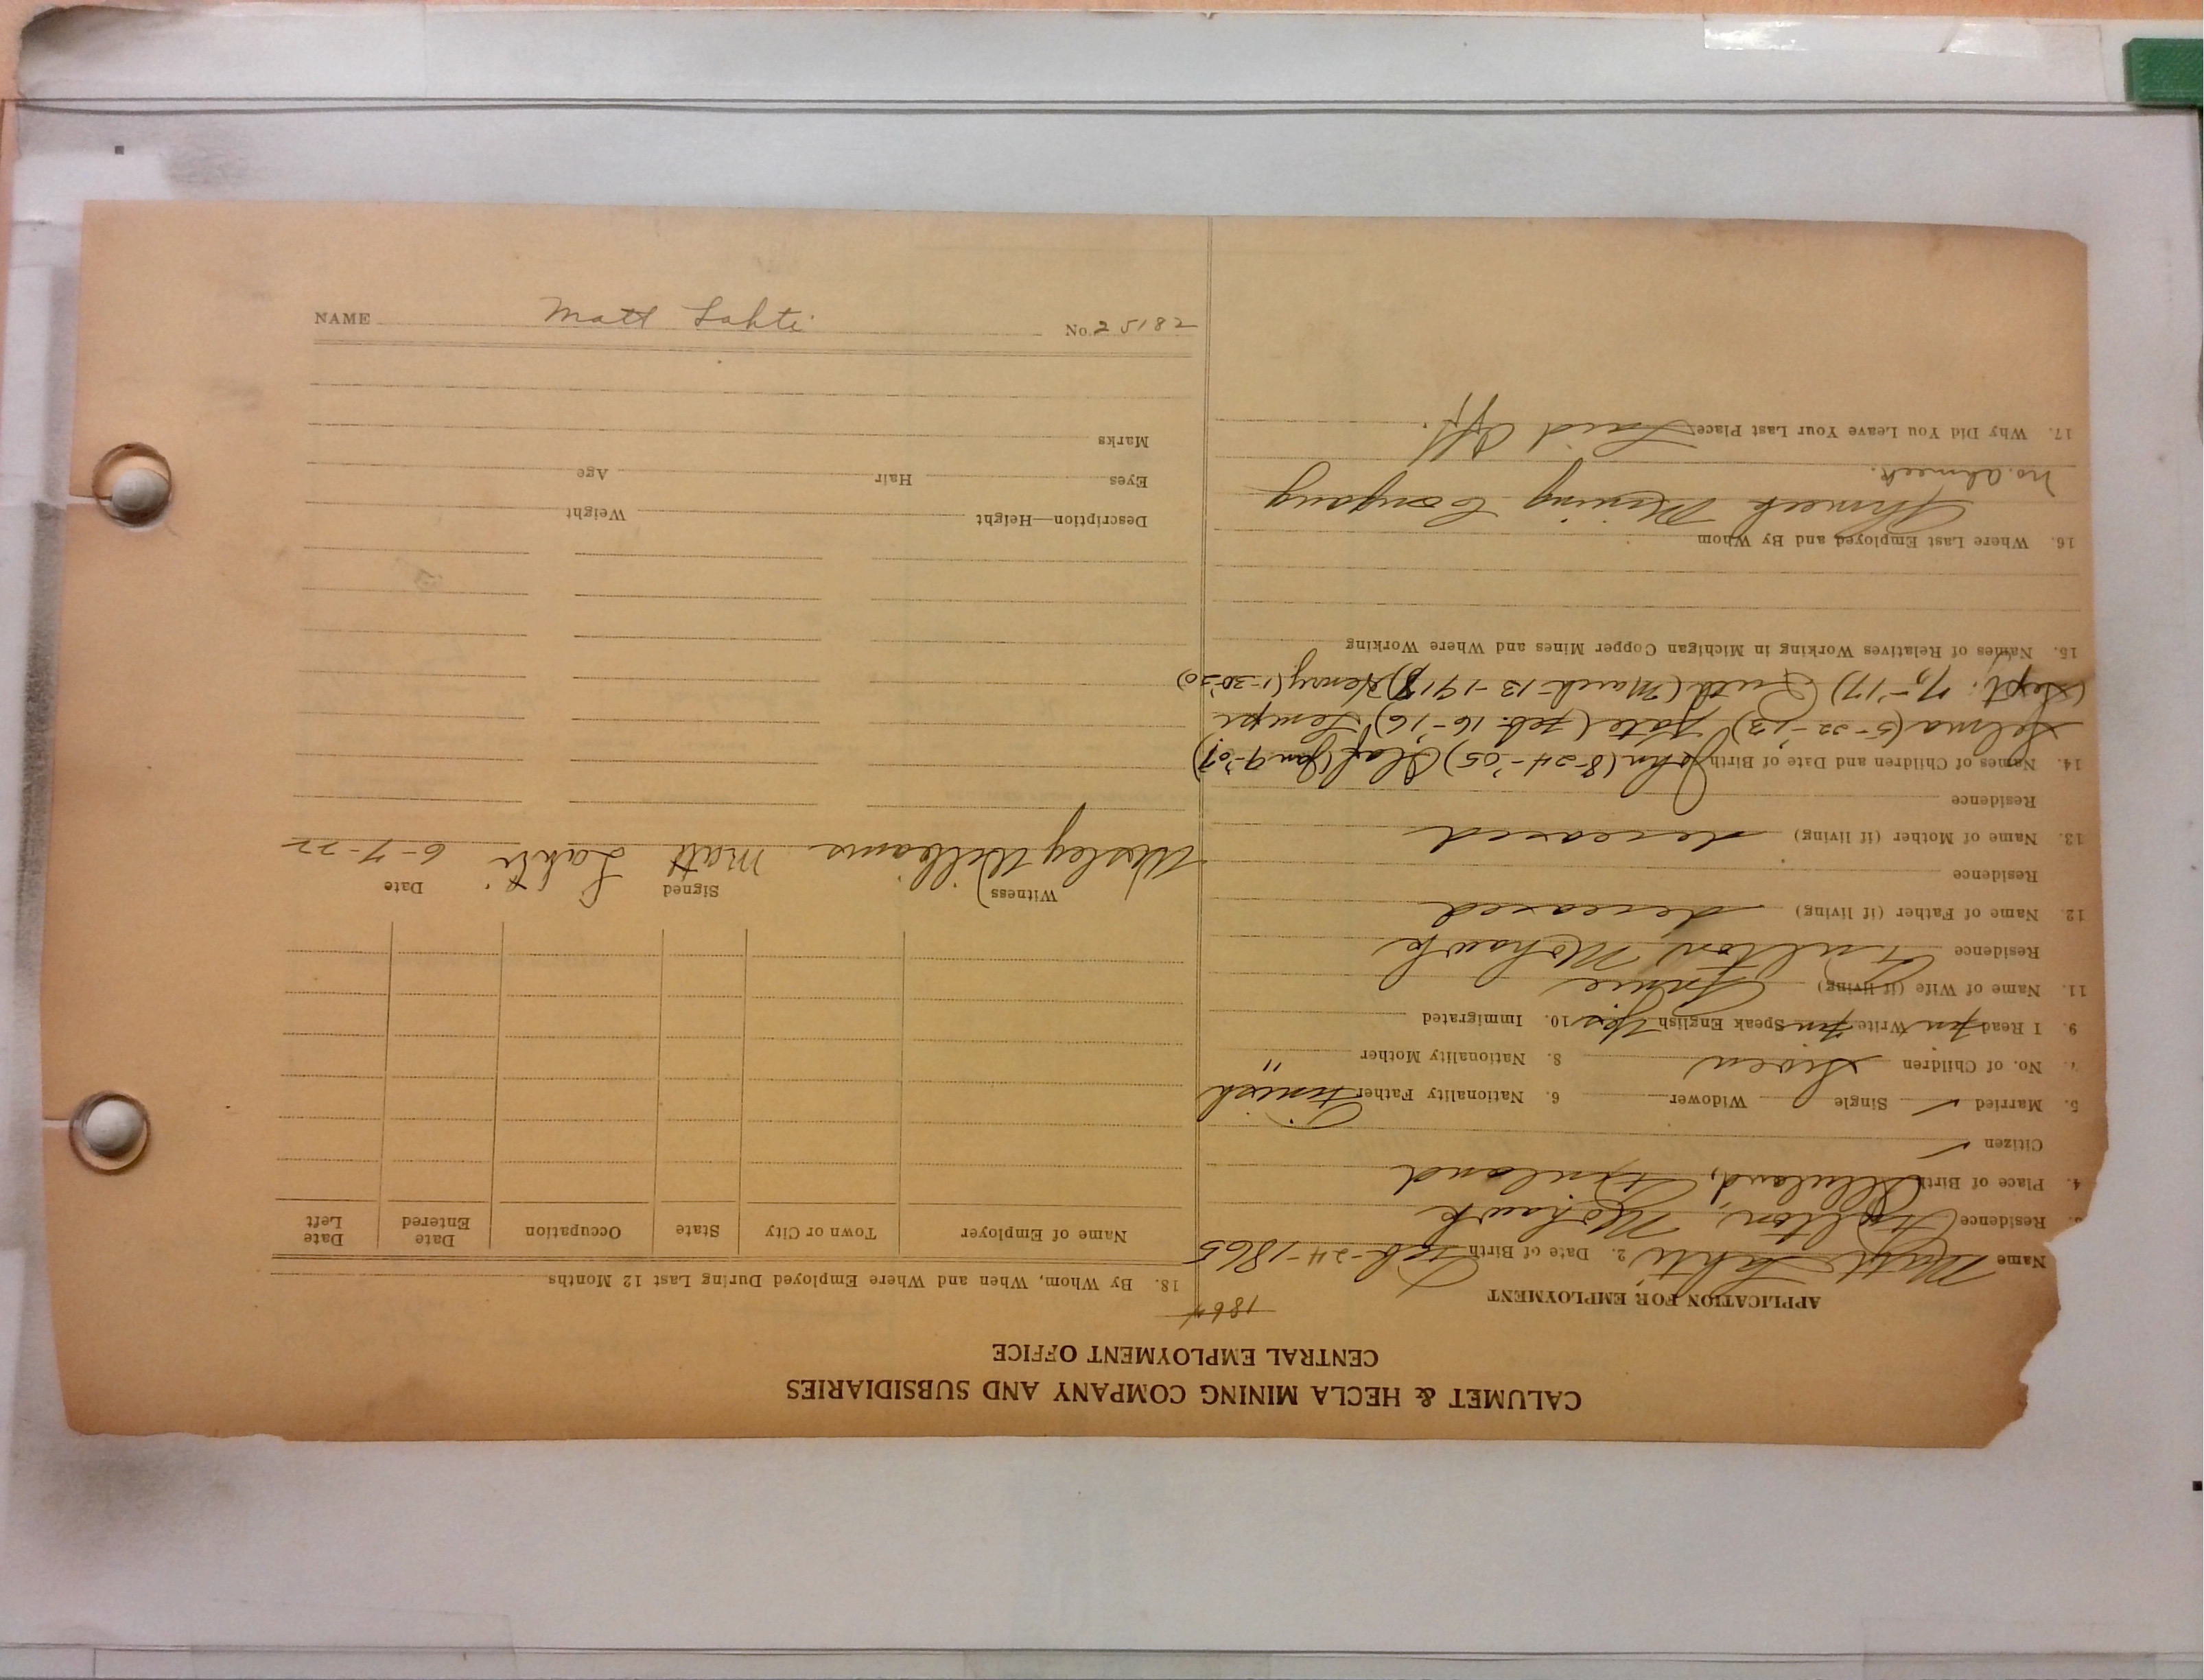 CALUMET & HECLA MINING COMPANY AND SUBSIDIARIES
CENTRAL EMPLOYMENT OFFICE
APPLICATION FOR EMPLOYMENT
1864
Name Matt Lahti 2. Date of Birth Feb-24-1865
Residence Fulton, Mohawk
4. Place of Birth Finland
Citizen ✓
5. Married ✓ Single Widower 6. Nationality Father Finnish
No. of Children Seven 8. Nationality Mother "
9. I Read Fin Write Fin Speak English Yes 10. Immigrated
11. Name of Wife (if living) Fannie
Residence Fulton Mohawk
12. Name of Father (if living) deceased
Residence
13. Name of Mother (if living) deceased
Residence
14. Names of Children and Date of Birth John (8-24-'05) Olaf (Jan 9-'07)
Selma (5-22-'13) Kate (Feb. 16-'16) Lempi
(Sept. 17) Ruth (March 13-1918) Henry (1-30-20)
15. Names of Relatives Working in Michigan Copper Mines and Where Working
16. Where Last Employed and By Whom
Ahmeek Mining Company
No. Ahmeek.
17. Why Did You Leave Your Last Place Laid Off.
18. By Whom, When and Where Employed During Last 12 Months
Name of Employer Town or City State Occupation Date Entered Date Left
Witness Signed Date
Wesley Williams Matt Lahti 6-7-22
Description—Height Weight
Eyes Hair Age
Marks
NAME Matt Lahti No. 25182